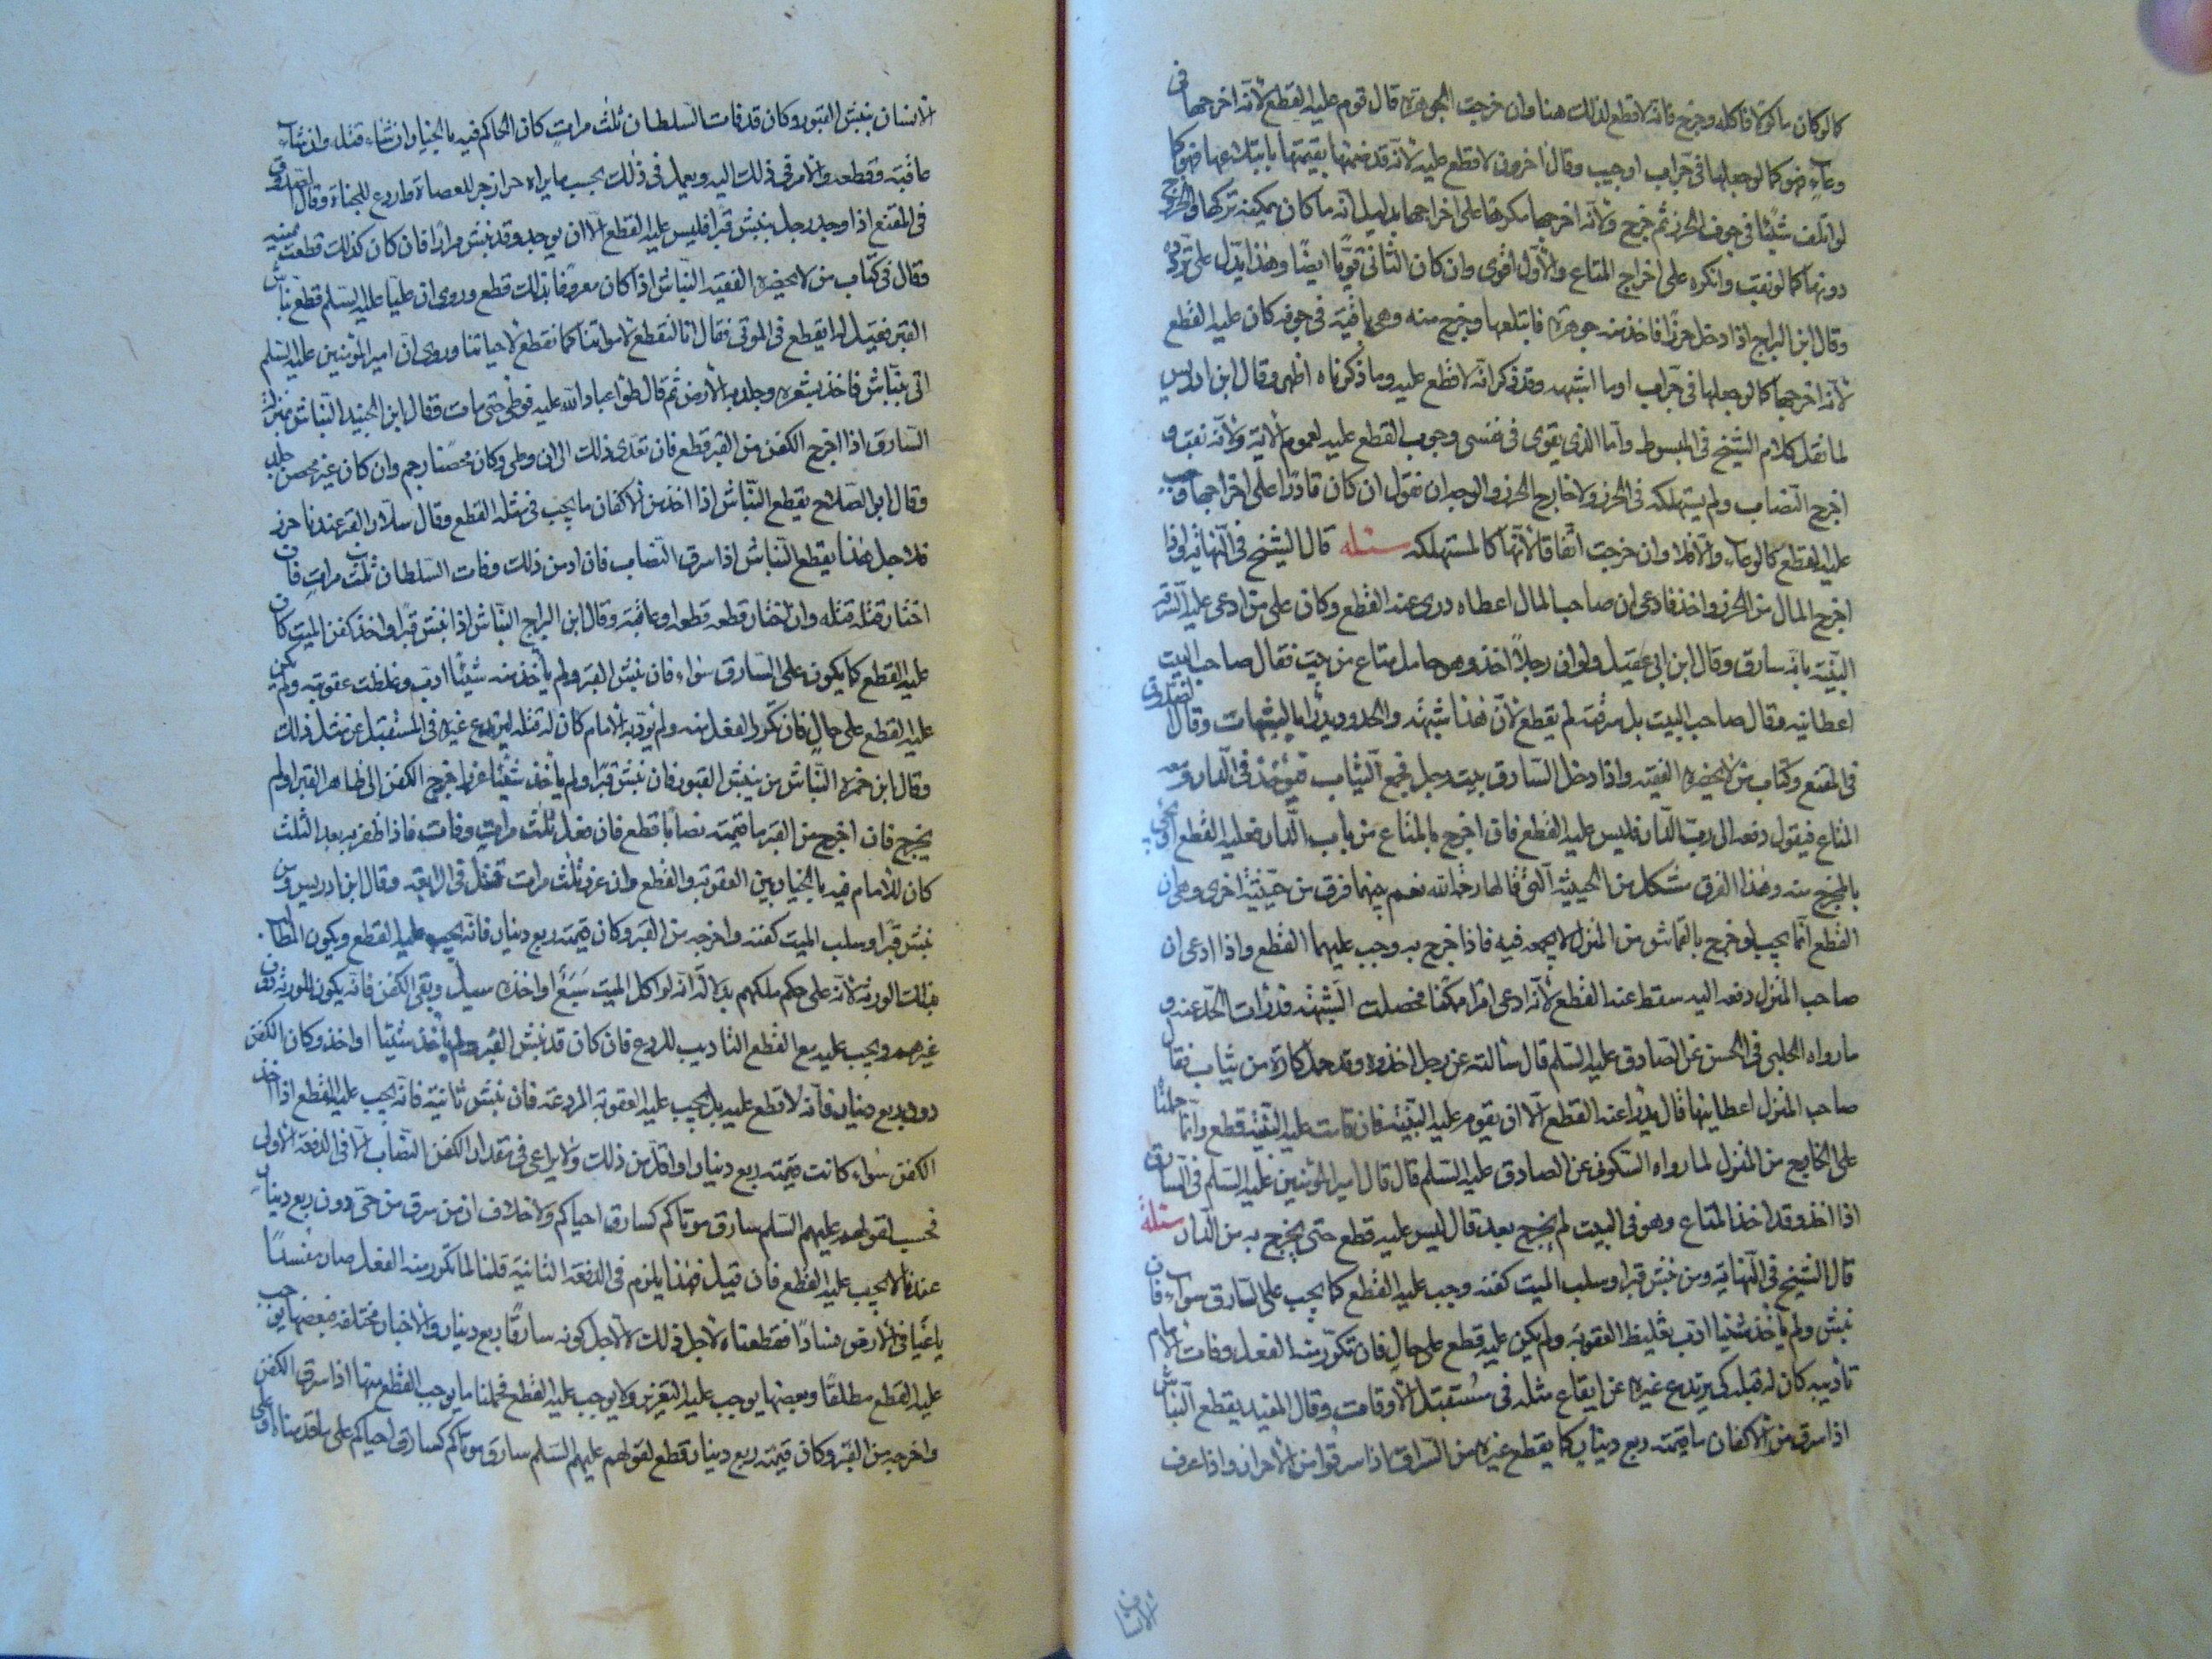 كما لو كان ماكولا فاكله وخرج فانه لا قطع لذلك هنا وان خرجت الجوهرة قال قوم عليه القطع لانه اخرجها في
وعاء فهو كما لو جعلها في جراب او جيب وقال اخرون لا قطع عليه لانه قد ضمنها بقيمتها بابتلاعها فهو كما
لو اتلف شيئا في جوف الحرز ثم خرج ولانه اخرجها مكرها على اخراجها بدليل انه ما كان يمكنه تركها والخروج
دونها كما لو نقب واكره على اخراج المتاع والاول اقوى وان كان الثاني قويا ايضا وهذا يدل على تردده
وقال ابن البراج اذا دخل حرزا فاخذ منه جوهرة فابتلعها وخرج منه وهي باقية في جوفه كان عليه القطع
لانه اخرجها كما لو جعلها في جراب او ما اشبهه وقد ذكر انه لا قطع عليه وما ذكرناه اظهر وقال ابن ادريس
لما نقل كلام الشيخ في المبسوط واما الذي يقوى في نفسي وجوب القطع عليه لعموم الاية ولانه نقب و
اخرج النصاب ولم يستهلكه في الحرز ولا خارج الحرز والوجه ان نقول ان كان قادرا على اخراجها وجب
عليه القطع كالوعاء والا فلا وان خرجت اتفاقا لانها كالمستهلكه مسئله قال الشيخ في النهاية واذا
اخرج المال من الحرز واخذ فادعى ان صاحب المال اعطاه درئ عنه القطع وكان على من ادعى عليه السرقة
البينة بانه سارق وقال ابن ابي عقيل ولو ان رجلا اخذ وهو حامل متاع من بيت فقال صاحب البيت
اعطانيه وقال صاحب البيت بل سرقته لم يقطع لان هذا شبهة والحدود يدرأ بالشبهات وقال الصدوق
في المقنع وكتاب من لا يحضره الفقيه واذا دخل السارق بيت رجل فجمع الثياب فيؤخذ في الدار ومعه
المتاع فيقول دفعه الى رب الدار فليس عليه القطع فان اخرج بالمتاع من باب الدار فعليه القطع او يجئ
بالمخرج منه وهذا الفرق مشكل من الحيثية التي قالها رحمه الله نعم بينهما فرق من حيثية اخرى وهي ان
القطع انما يجب لو خرج بالقماش من المنزل لا بجمعه فيه فاذا خرج به وجب عليهما القطع واذا ادعى ان
صاحب المنزل دفعه اليه سقط عنه القطع لانه ادعى امرا ممكنا فحصلت الشبهة فدرأت الحد عنه و
ما رواه الحلبي في الحسن عن الصادق عليه السلم قال سالته عن رجل اخذوه وقد حمل كارة من ثياب فقال
صاحب المنزل اعطانيها قال يدرأ عنه القطع الا ان يقوم عليه البينة فان قامت عليه البينة قطع وانما حملنا
على الخارج من المنزل لما رواه السكوني عن الصادق عليه السلم قال قال امير المؤمنين عليه السلم في السارق
اذا اخذ وقد اخذ المتاع وهو في البيت لم يخرج بعد قال ليس عليه قطع حتى يخرج به من الدار مسئلة
قال الشيخ في النهاية ومن نبش قبرا وسلب الميت كفنه وجب عليه القطع كما يجب على السارق سواء فان
نبش ولم ياخذ شيئا ادب بغليظ العقوبة ولم يكن عليه قطع على حال فان تكرر منه الفعل وفات الامام
تأديبه كان له قتله كي يرتدع غيره عن ايقاع مثله في مستقبل الاوقات وقال المفيد يقطع النباش
اذا سرق من الاكفان ما قيمته ربع دينار كما يقطع غيره من السراق اذا سرقوا من الاحراز واذا عرف
الانسان
الانسان بنبش القبور وكان قد فات السلطان ثلث مرات كان الحاكم فيه بالخيار ان شاء قتله وان شاء
عاقبه وقطعه والامر في ذلك اليه ويعمل في ذلك بحسب ما يراه ازجر للعصاة واردع للجناة وقال الصدوق
في المقنع اذا وجد رجل ينبش قبرا فليس عليه القطع الا ان يوجد وقد نبش مرارا فان كان كذلك قطعت يمينه
وقال في كتاب من لا يحضره الفقيه النباش اذا كان معروفا بذلك قطع وروى ان عليا عليه السلم قطع نباش
القبر فقيل له ايقطع في الموتى فقال انا لنقطع لامواتنا كما نقطع لاحيائنا وروى ان امير المؤمنين عليه السلم
اتى بنباش فاخذ بشعره وجلد به الارض ثم قال طؤا عباد الله عليه فوطئ حتى مات وقال ابن الجنيد النباش بمنزلة
السارق اذا اخرج الكفن من القبر قطع فان تعدى ذلك الى ان وطى وكان محصنا رجم وان كان غير محصن جلد
وقال ابو الصلاح يقطع النباش اذا اخذ من الاكفان ما يجب في مثله القطع وقال سلار القبر عندنا حرز
فلاجل هذا يقطع النباش اذا سرق النصاب فان ادمن ذلك وفات السلطان ثلث مرات فان
اختار قتله قتله وان اختار قطعه قطعه او عاقبه وقال ابن البراج النباش اذا نبش قبرا واخذ كفن الميت كان
عليه القطع كما يكون على السارق سواء فان نبش القبر ولم يأخذ منه شيئا ادب وغلظت عقوبته ولم يكن
عليه القطع على حال فان تكرر الفعل منه ولم يؤدبه الامام كان له قتله ليرتدع غيره في المستقبل عن مثل ذلك
وقال ابن حمزة النباش من ينبش القبور فان نبش قبرا ولم يأخذ شيئا عزر اخرج الكفن الى ظاهر القبر او لم
يخرج فان اخرج من القبر ما قيمته نصابا قطع فان فعل ثلث مرات وفات فاذا ظفر به بعد الثلث
كان للامام فيه بالخيار بين العقوبة والقطع وان عزر ثلث مرات قتل في الرابعة وقال ابن ادريس ومن
نبش قبرا وسلب الميت كفنه واخرجه من القبر وكان قيمته ربع دينار فانه يجب عليه القطع ويكون المطالب
بذلك الورثة لانه على حكم ملكهم بدلالة انه لو اكل الميت سبع او اخذه سيل وبقى الكفن فانه يكون للورثة دون
غيرهم ويجب عليه مع القطع التاديب للردع فان كان قد نبش القبر ولم يأخذ شيئا او اخذ وكان الكفن
دون ربع دينار فانه لا قطع عليه بل يجب عليه العقوبة المردعة فان نبش ثانية فانه يجب عليه القطع اذا اخذ
الكفن سواء كانت قيمته ربع دينار او اقل من ذلك ولا يراعى في مقدار الكفن النصاب الا في الدفعة الاولى
فحسب لقولهم عليهم السلم سارق موتاكم كسارق احياكم ولا خلاف ان من سرق من حي دون ربع دينار
عندنا لا يجب عليه القطع فان قيل فهذا يلزم في الدفعة الثانية قلنا لما تكرر منه الفعل صار مفسدا
ساعيا في الارض فسادا فقطعناه لاجل ذلك لا لاجل كونه سارقا ربع دينار والاخبار مختلفة فبعضها يوجب
عليه القطع مطلقا وبعضها يوجب عليه التعزير ولا يوجب عليه القطع فحملنا ما يوجب القطع منها اذا سرق الكفن
واخرجه من القبر وكان قيمته ربع دينار قطع لقولهم عليهم السلم سارق موتاكم كسارق احياكم على ما قدمناه او على